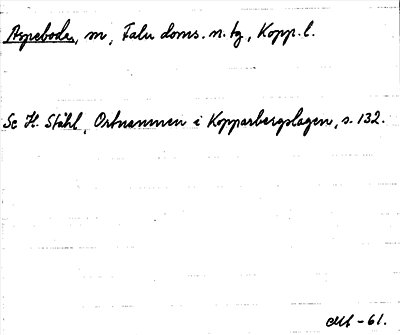 Aspeboda, m, Falu doms. n. tg, Kopp. l.
Se H. Ståhl, Ortnamnen i Kopparbergslagen, s. 132.
-61.